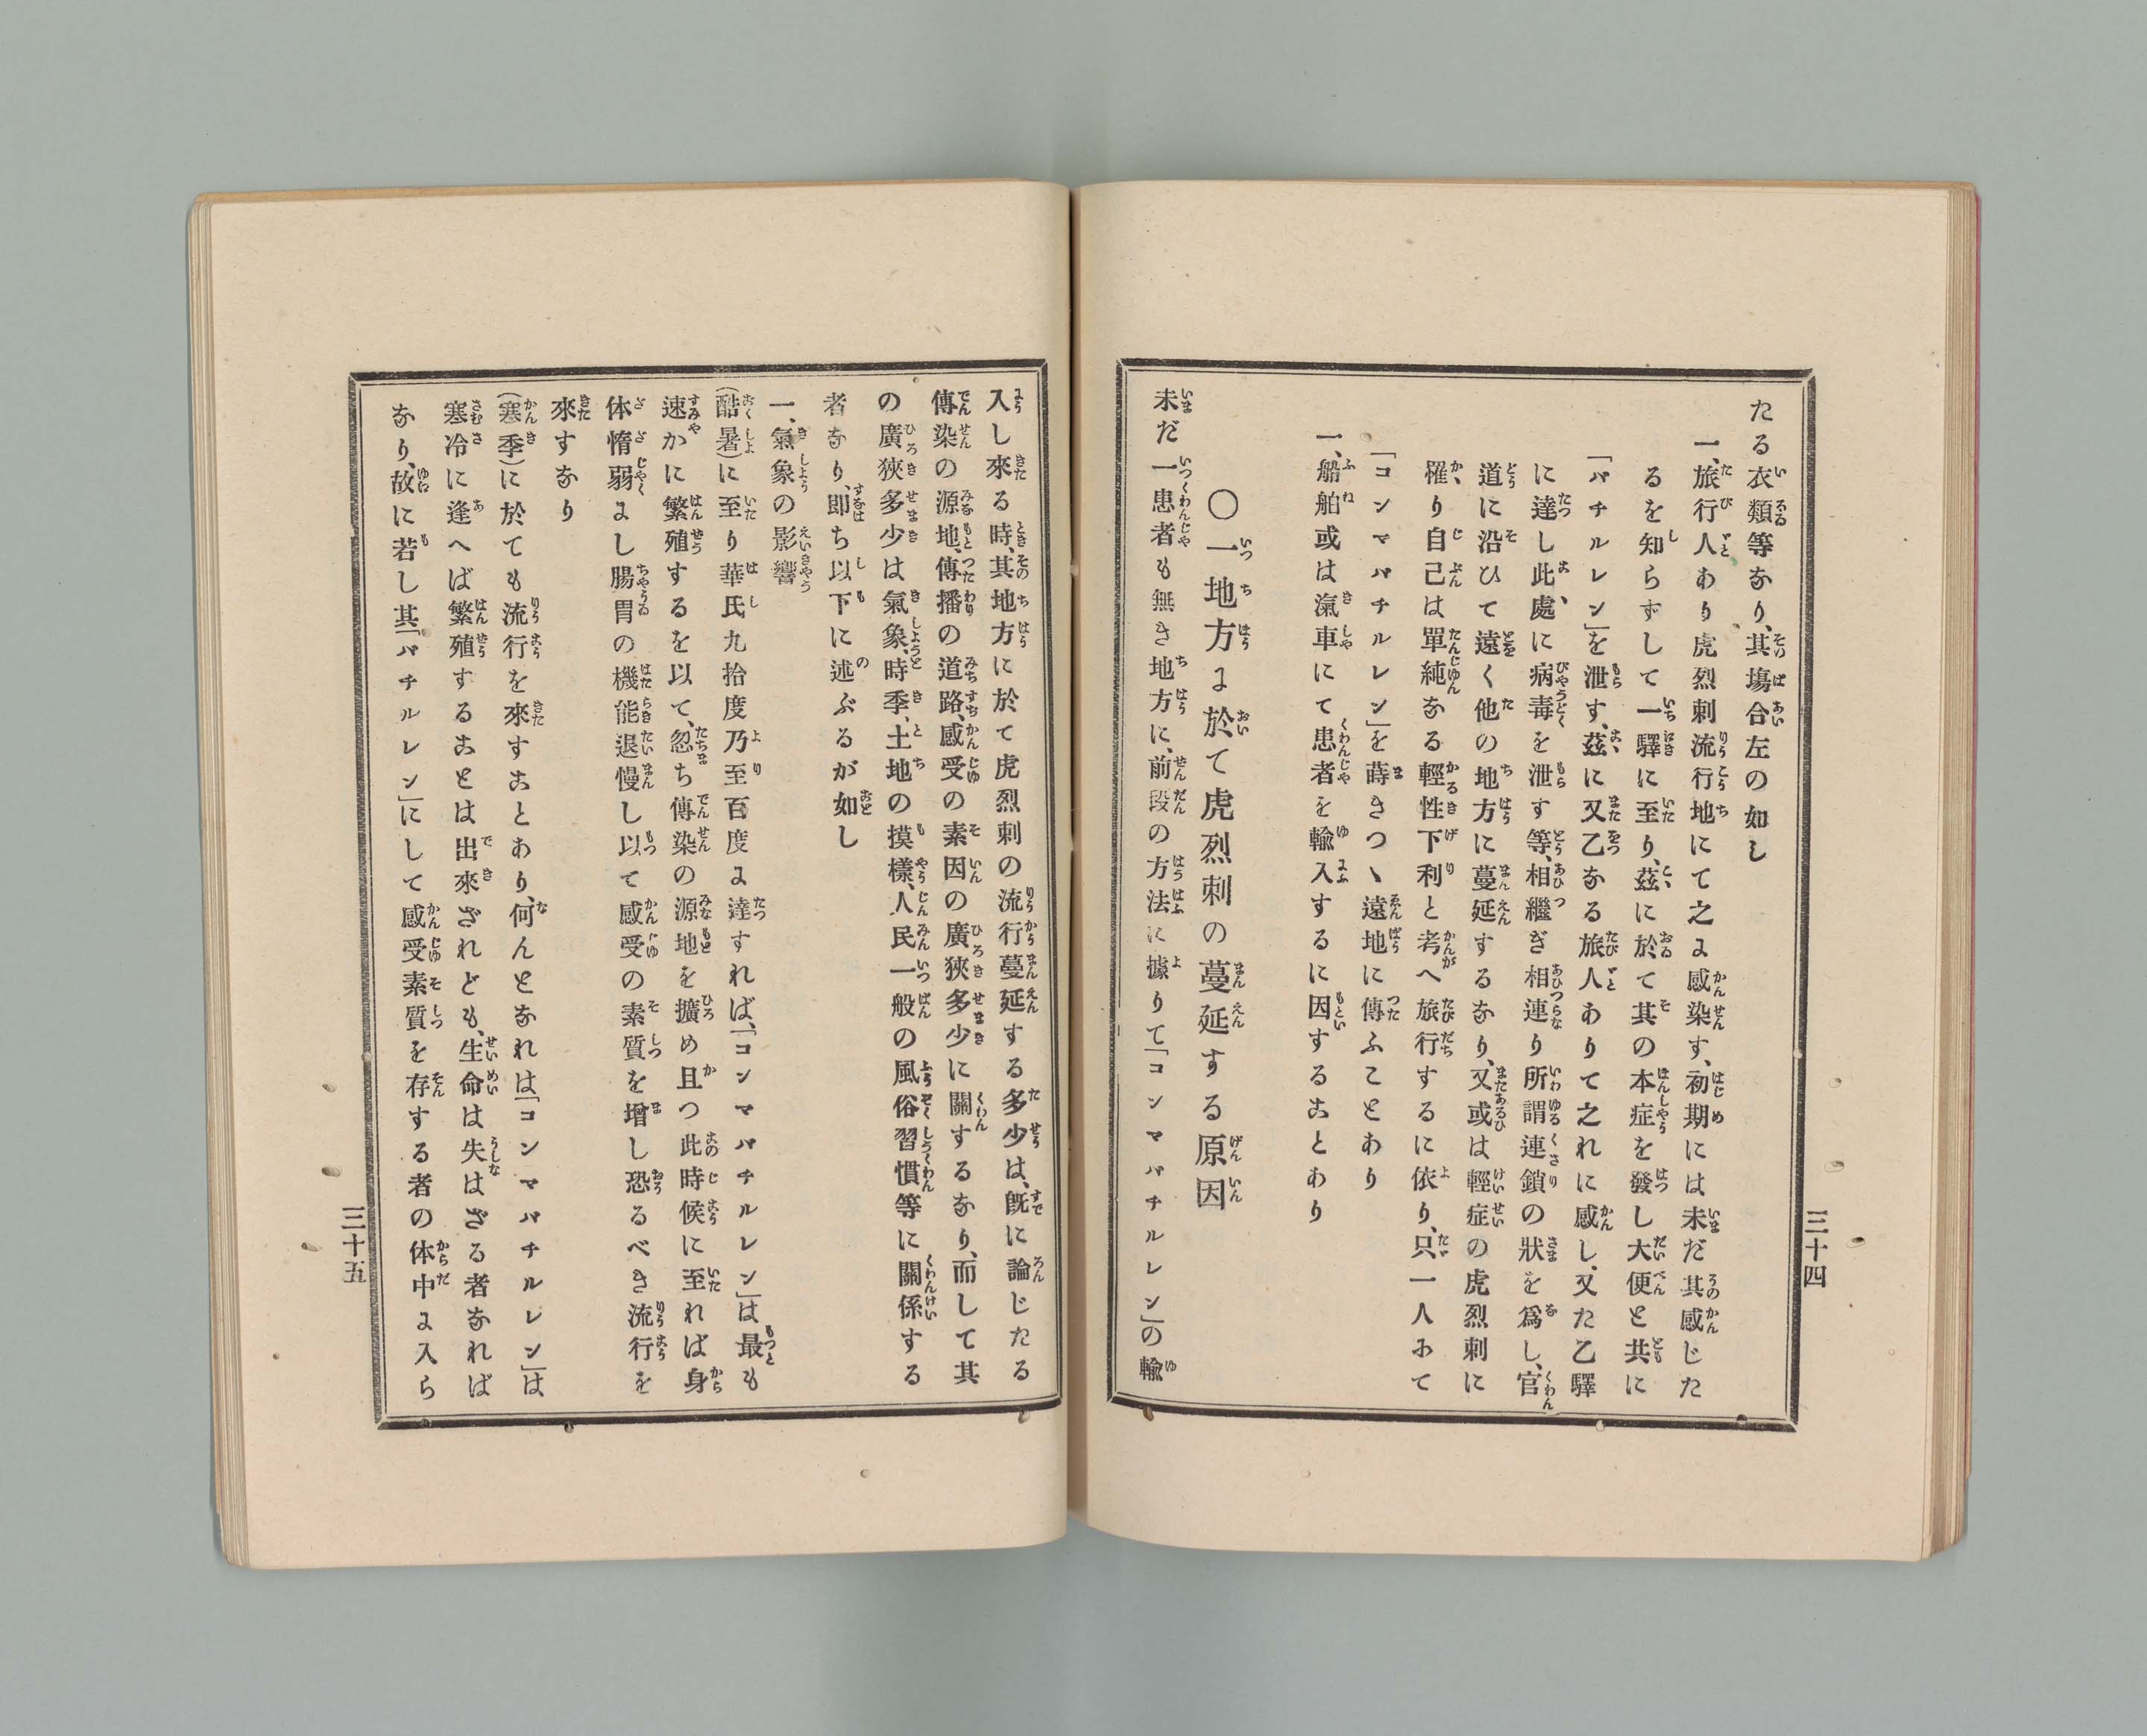 たる衣類等なり、其塲合左の如し
一、旅行人あり虎烈刺流行地にて之に感染す、初期には未だ其感じた
るを知らずして一驛に至り、茲に於て其の本症を發し大便と共に
「バチルレン」を泄す、茲に又乙なる旅人ありて之れに感し、又た乙驛
に達し此處に病毒を泄す等、相繼ぎ相連り所謂連鎖の狀を爲し、官
道に沿ひて遠く他の地方に蔓延するなり、又或は輕症の虎烈刺に
罹り自己は單純なる輕性下利と考へ旅行するに依り、只一人にて
「コンマバチルレン」を蒔きつヽ遠地に傳ふことあり
一、船舶或は滊車にて患者を輸入するに因することあり
〇一地方に於て虎烈刺の蔓延する原因
未だ一患者も無き地方に、前段の方法に據りて「コンマバチルレン」の輸
三十四
入し來る時、其地方に於て虎烈刺の流行蔓延する多少は、既に論じたる
傳染の源地、傳播の道路、感受の素因の廣狹多少に關するなり、而して其
の廣狹多少は氣象、時季、土地の摸樣、人民一般の風俗習慣等に關係する
者なり、即ち以下に述ぶるが如し
一、氣象の影響
(酷暑)に至り華氏九拾度乃至百度に達すれば、「コンマバチルレン」は最も
速かに繁殖するを以て、忽ち傳染の源地を擴め且つ此時候に至れば身
体惰弱にし腸胃の機能退慢し以て感受の素質を增し恐るべき流行を
來すなり
(寒季)に於ても流行を來すことあり、何んとなれは「コンマバチルレン」は
寒冷に逢へば繁殖することは出來ざれども、生命は失はざる者なれば
なり、故に若し其「バチルレン」にして感受素質を存する者の体中に入ら
三十五